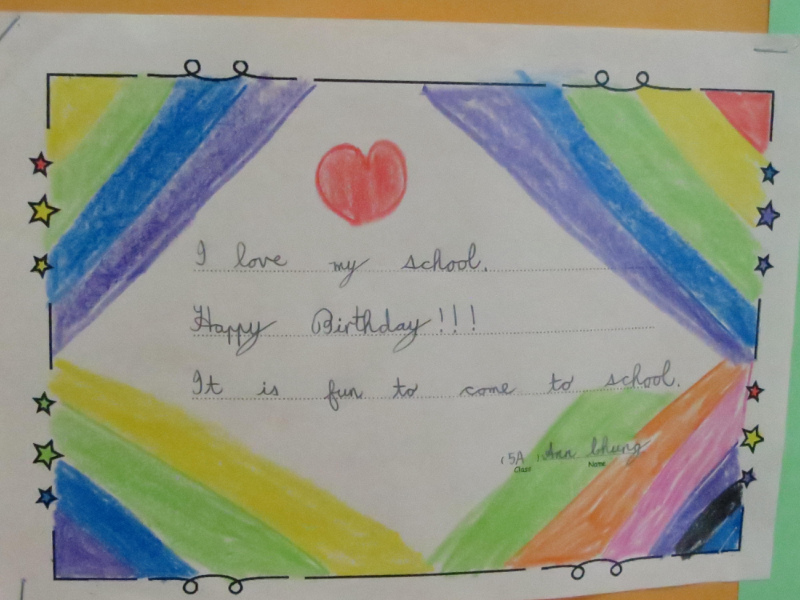 I love my school.
Happy Birthday!!!
It is fun to come to school.
(5A) Ann Chung
Class Name